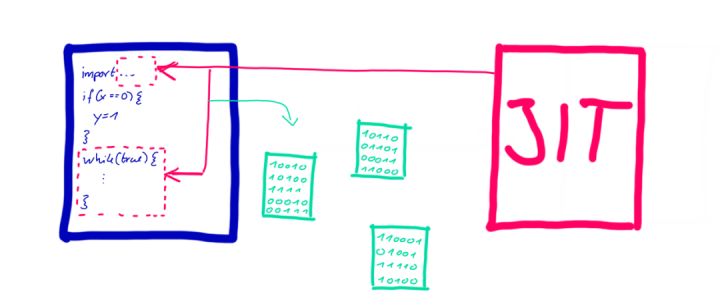 import ...
if(x==0){
y=1
}
while(true){
⋮
}
10010
10100
1111
00010
00111
10110
01101
00011
11000
110001
01001
11110
10100
JIT